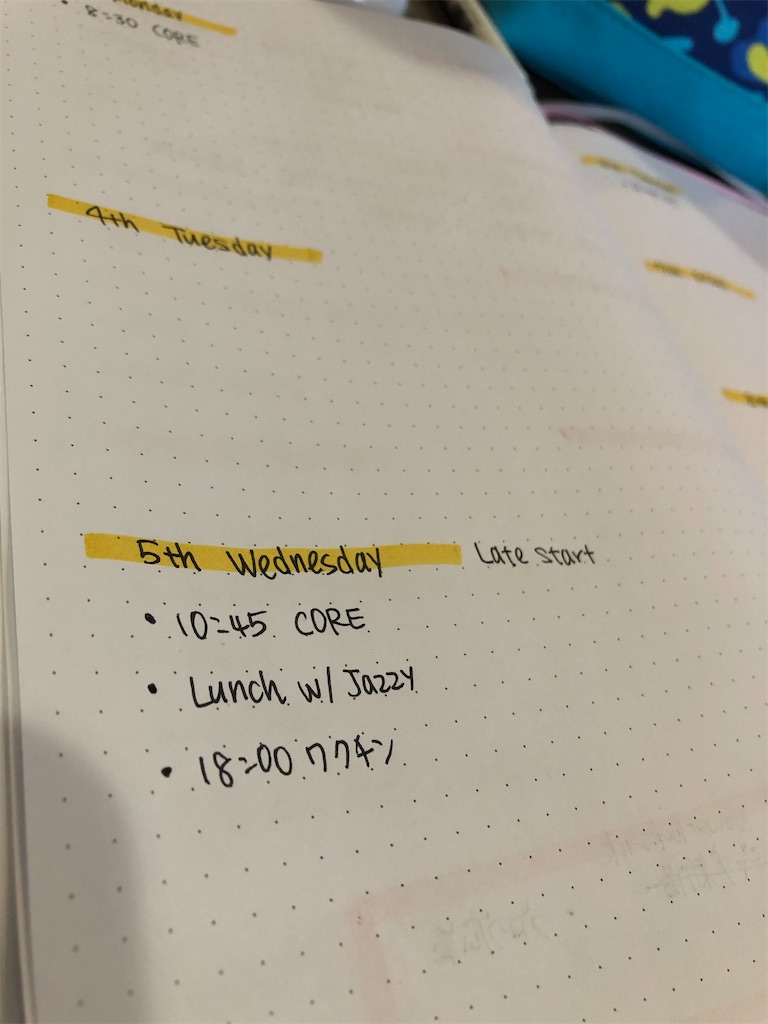 Monday
• 8:30 CORE
4th Tuesday
5th Wednesday Late start
• 10:45 CORE
• Lunch w/ Jazzy
• 18:00 ワクチン